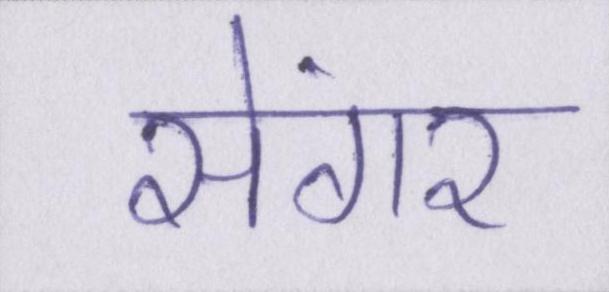 सेंगर